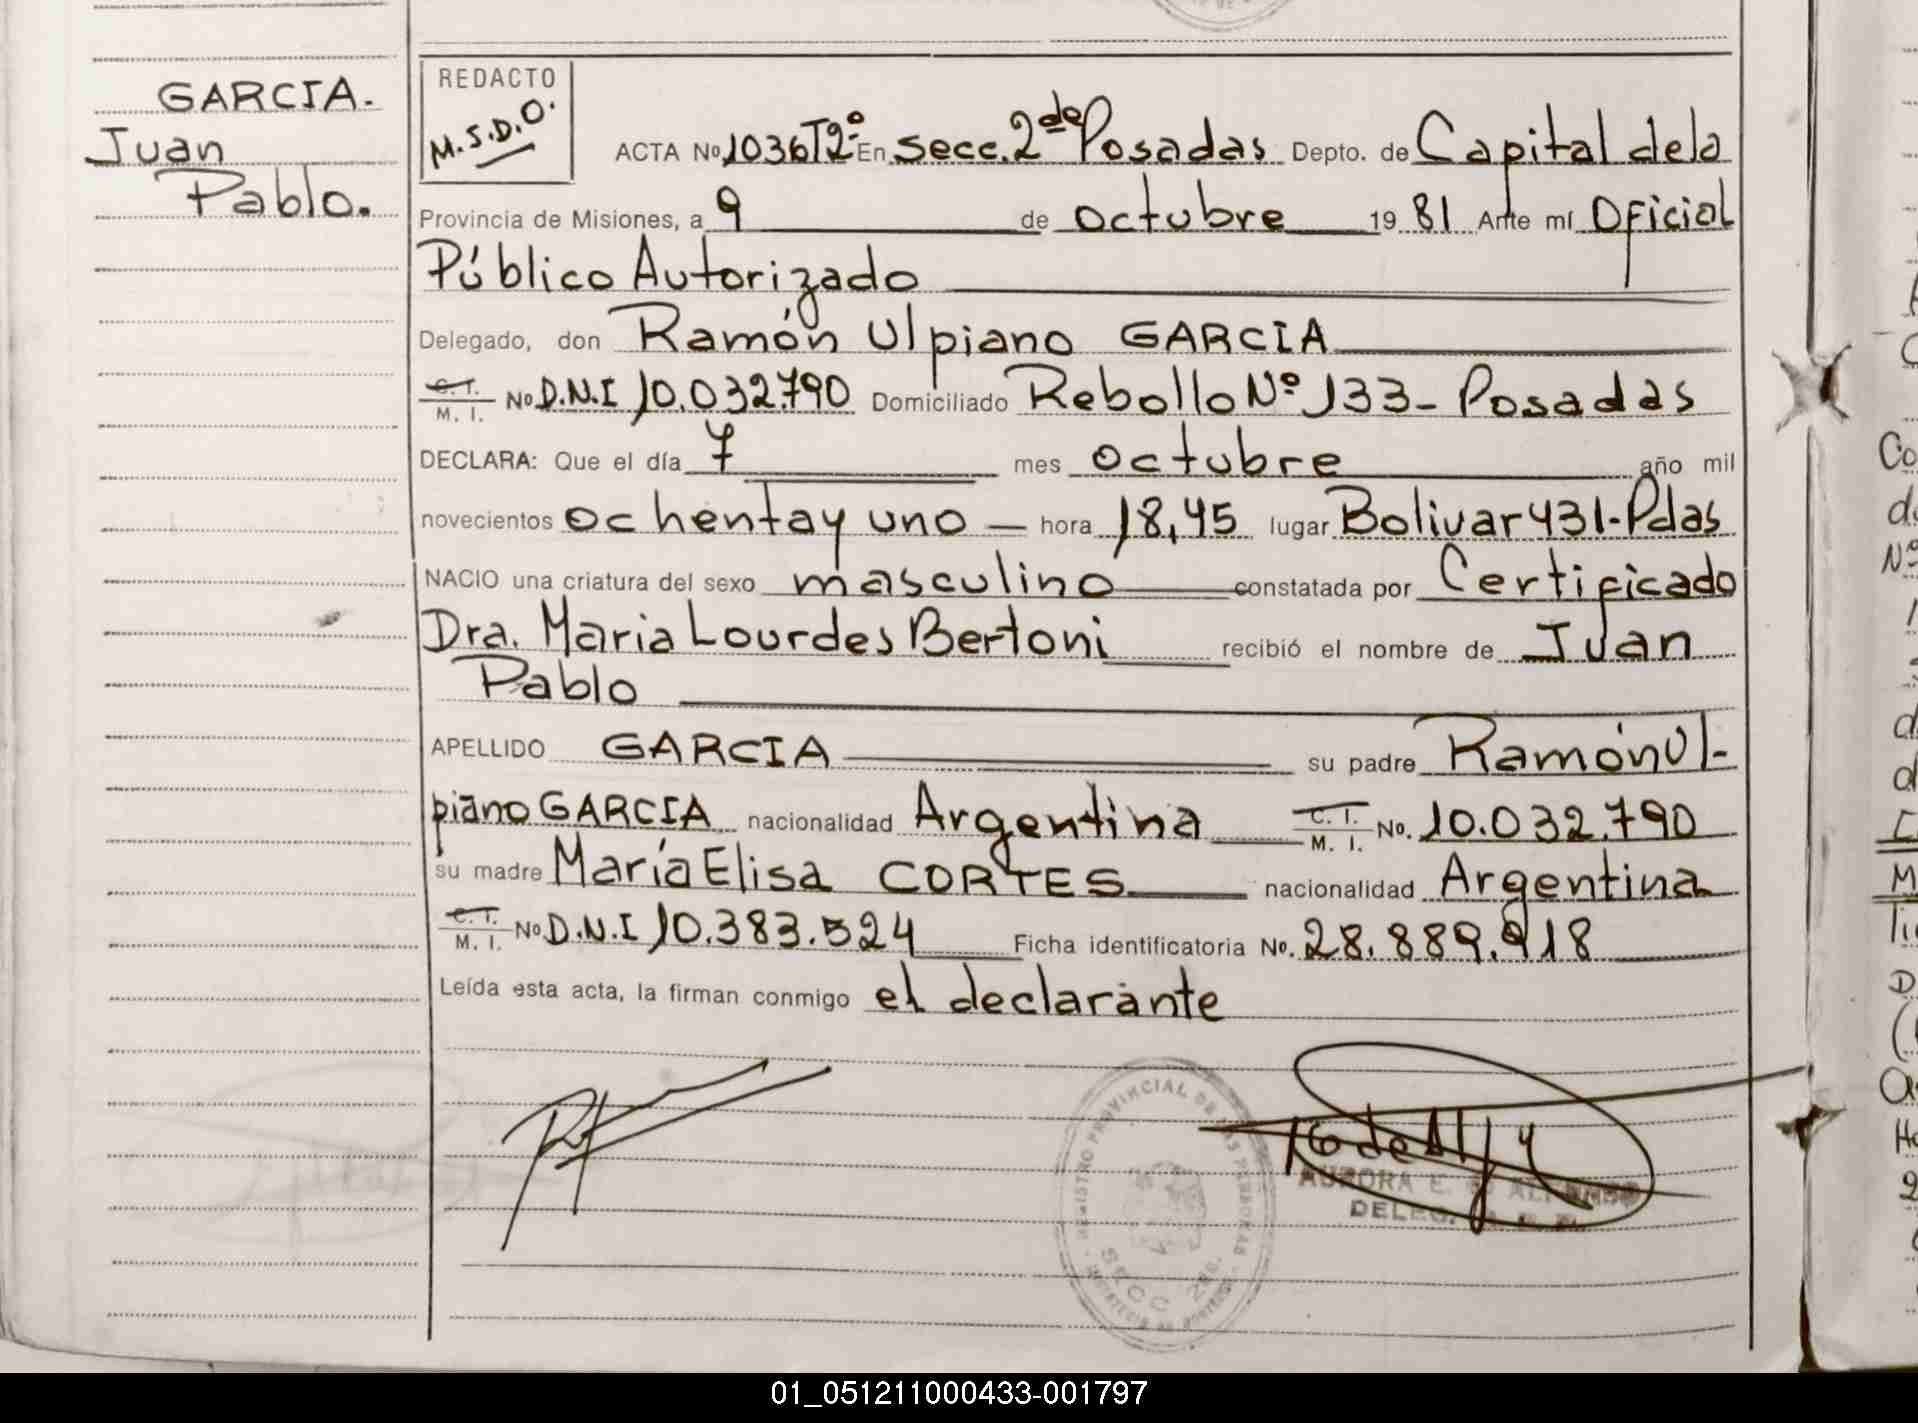 GARCIA.
Juan
Pablo.
REDACTO
M.S.D.O.
ACTA No 1036T2º En Secc. 2da Posadas Depto. de Capital dela
Provincia de Misiones, a 9 de octubre 19 81 Ante mí Oficial
Público Autorizado
Delegado, don Ramón Ulpiano GARCIA
C.I. M. I. No D.N.I 10.032.790 Domiciliado Rebollo Nº 133 - Posadas
DECLARA: Que el día 7 mes octubre año mil
novecientos ochentay uno hora 18,45 lugar Bolivar 431-Pdas
NACIO una criatura del sexo masculino constatada por Certificado
Dra. Maria Lourdes Bertoni recibió el nombre de Juan
Pablo
APELLIDO GARCIA su padre Ramón Ul-
piano GARCIA nacionalidad Argentina C.I. M. I. No. 10.032.790
su madre María Elisa CORTES nacionalidad Argentina
C.I. M. I. No D.N.I 10.383.524 Ficha identificatoria No. 28.889.918
Leída esta acta, la firman conmigo el declarante
REGISTRO PROVINCIAL DE LAS PERSONAS
SECC. 2da.
AURORA E.
DELEG.
01_051211000433-001797